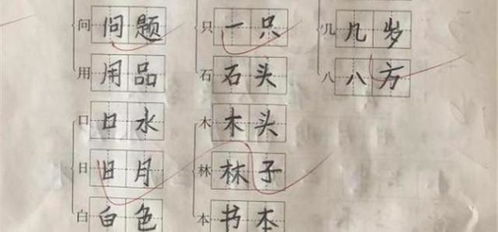 问 问题 只 一只 几 几岁
用 用品 石 石头 八 八方
口 口水 木 木头
日 日月 林 林子
白 白色 本 书本